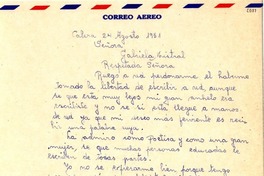 CORREO AEREO
Calera 24 Agosto 1951
Señora
Gabriela Mistral
Respetada Señora
Ruego a ud perdonarme el haberme
tomado la libertad de escribir a ud, aunque
sé que está muy lejos mi gran anhelo era
escribirle y no se si esta llegue a manos.
de ud ya que mi
una palabra suya.
La admiro como Poetisa y como una gran
mujer, se que muchas personas educadas le
escriben de todas partes.
Yo no se expresarme bien porque tengo